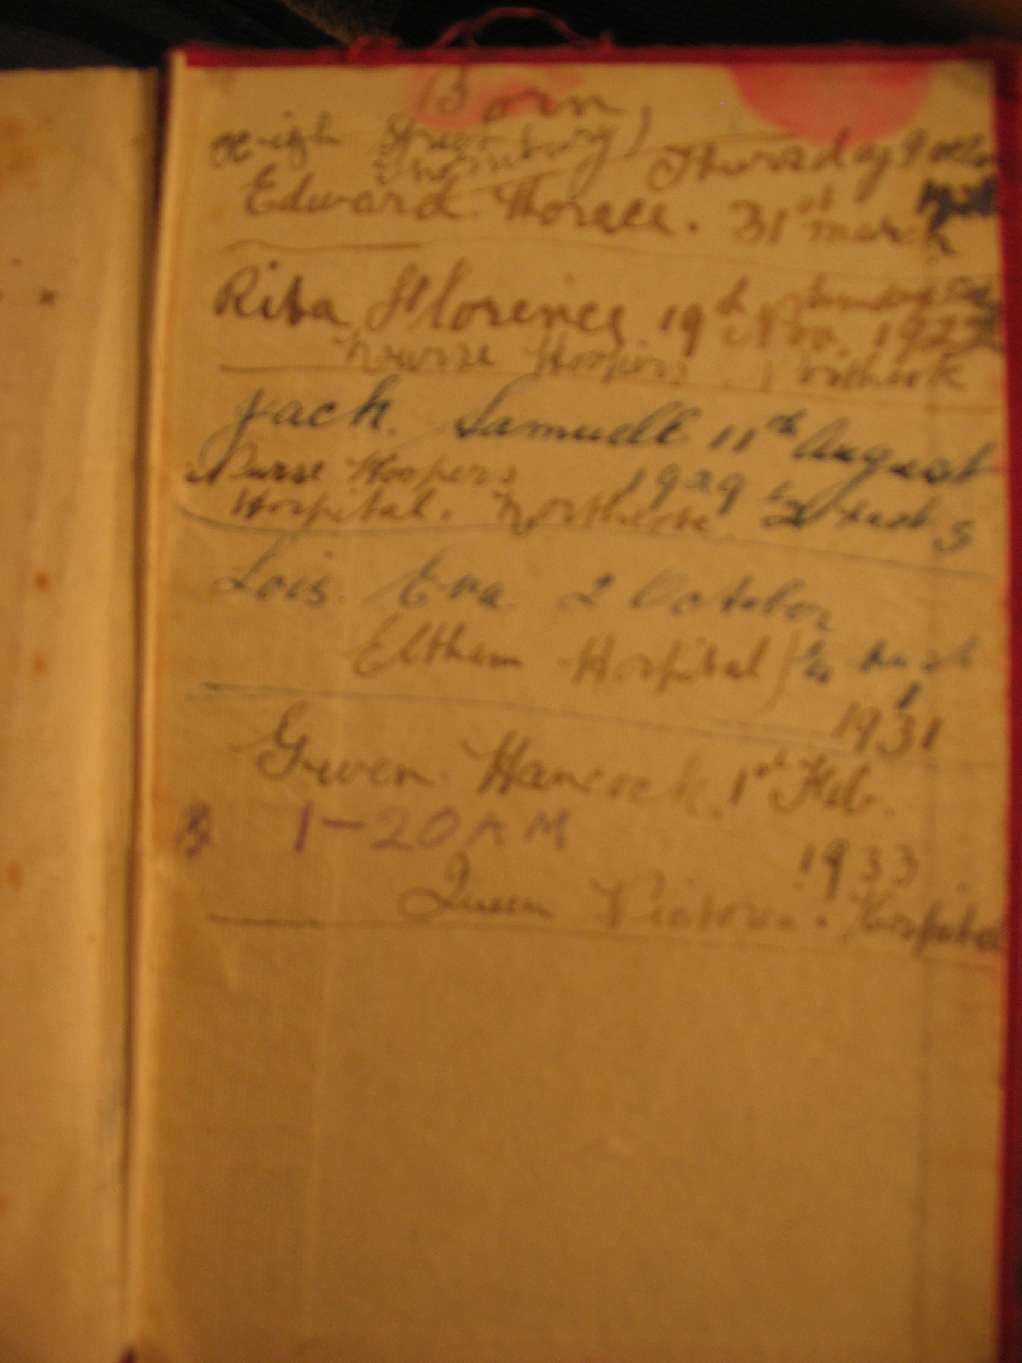 Born,
High Street
Thornbury) Thursday 9
Edward. Horace. 31st March
Rita Florence 19th Nov. 1927
Nurse Hoopers Northcote
Jack. Samuell 11th August
Nurse Hoopers 1929
Hospital. Northcote 5
Lois. Eva 2 October
Eltham Hospital)
1931
Gwen Hancock. 1st Feb.
1-20 AM
1933
Queen Victoria. Hospital